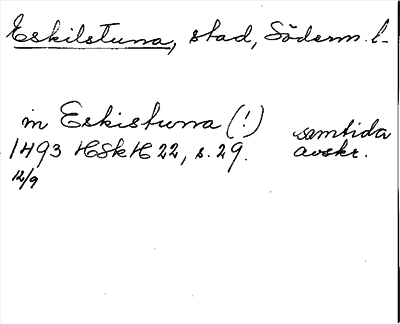 Eskilstuna, stad, Söderm. l.
in Eskistuna (!)
1493 HSkH 22, s. 29. samtida avskr.
12/9